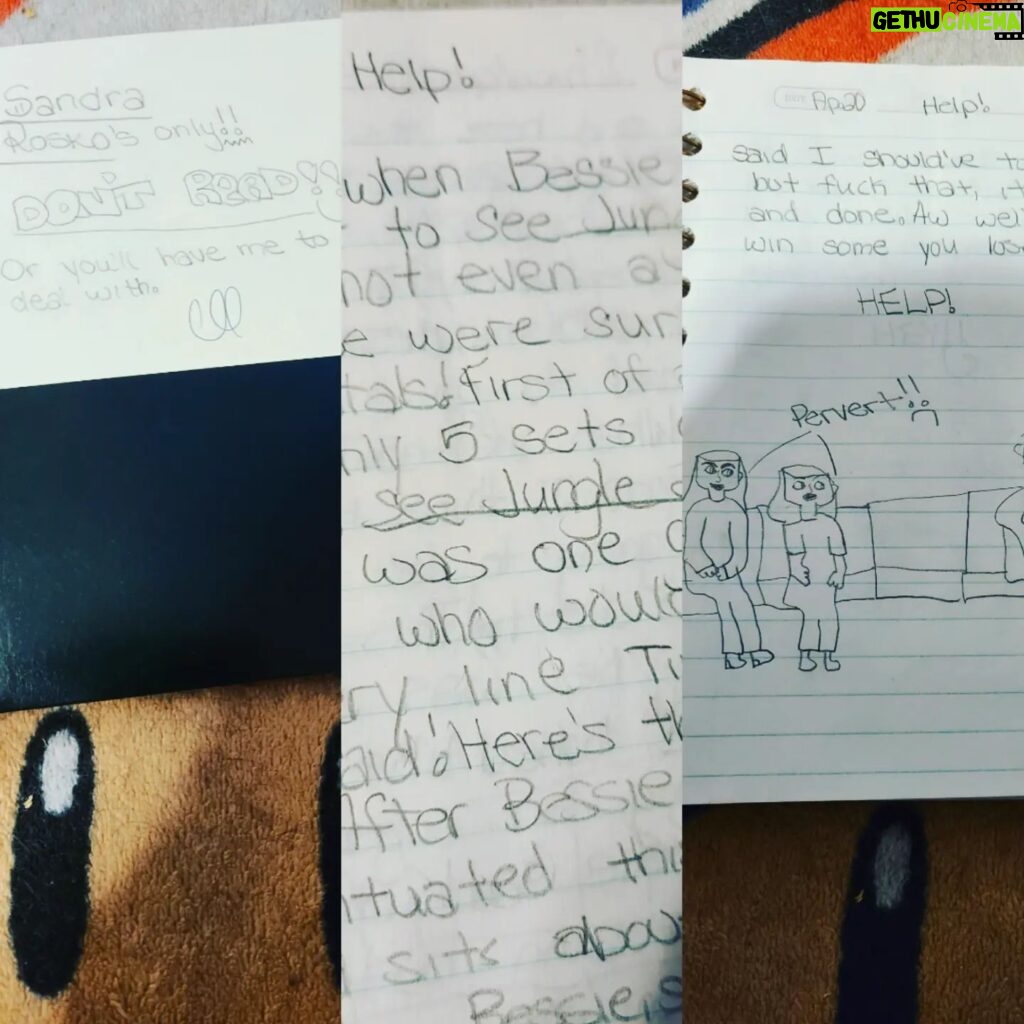 GETHUCINEMA
Sandra
Rosko's only!!
DON'T READ!!
Or you'll have me to
deal with.
Help!
when Bessie
to see Jun
not even a
e were sur
tals! First of
nly 5 sets
see Jungle
was one
who would
ry line Ti
aid! Here's th
After Bessie
ntuated thi
sits abou
Bessie, s
Ap.20 Help!
said I should've to
but fuck that, it
and done. Aw wel
win some you los
HELP!
Pervert!!